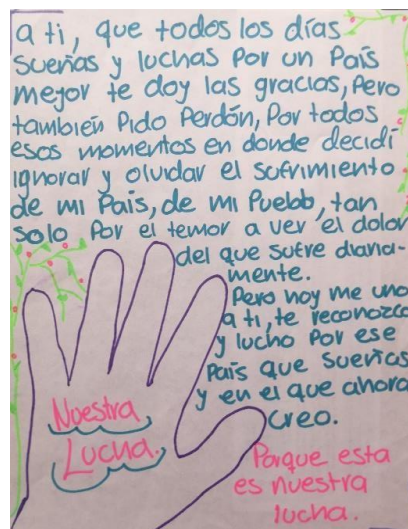 a ti, que todos los días
sueñas y luchas por un País
mejor te doy las gracias, Pero
también Pido Perdón, Por todos
esos momentos en donde decidí
ignorar y olvidar el sufrimiento
de mi País, de mi Pueblo, tan
solo Por el temor a ver el dolor
del que sufre diaria-
mente.
Pero hoy me uno
a ti, te reconozco
y lucho Por ese
País que sueñas
y en el que ahora
creo.
Nuestra
Lucha.
Porque esta
es nuestra
lucha.